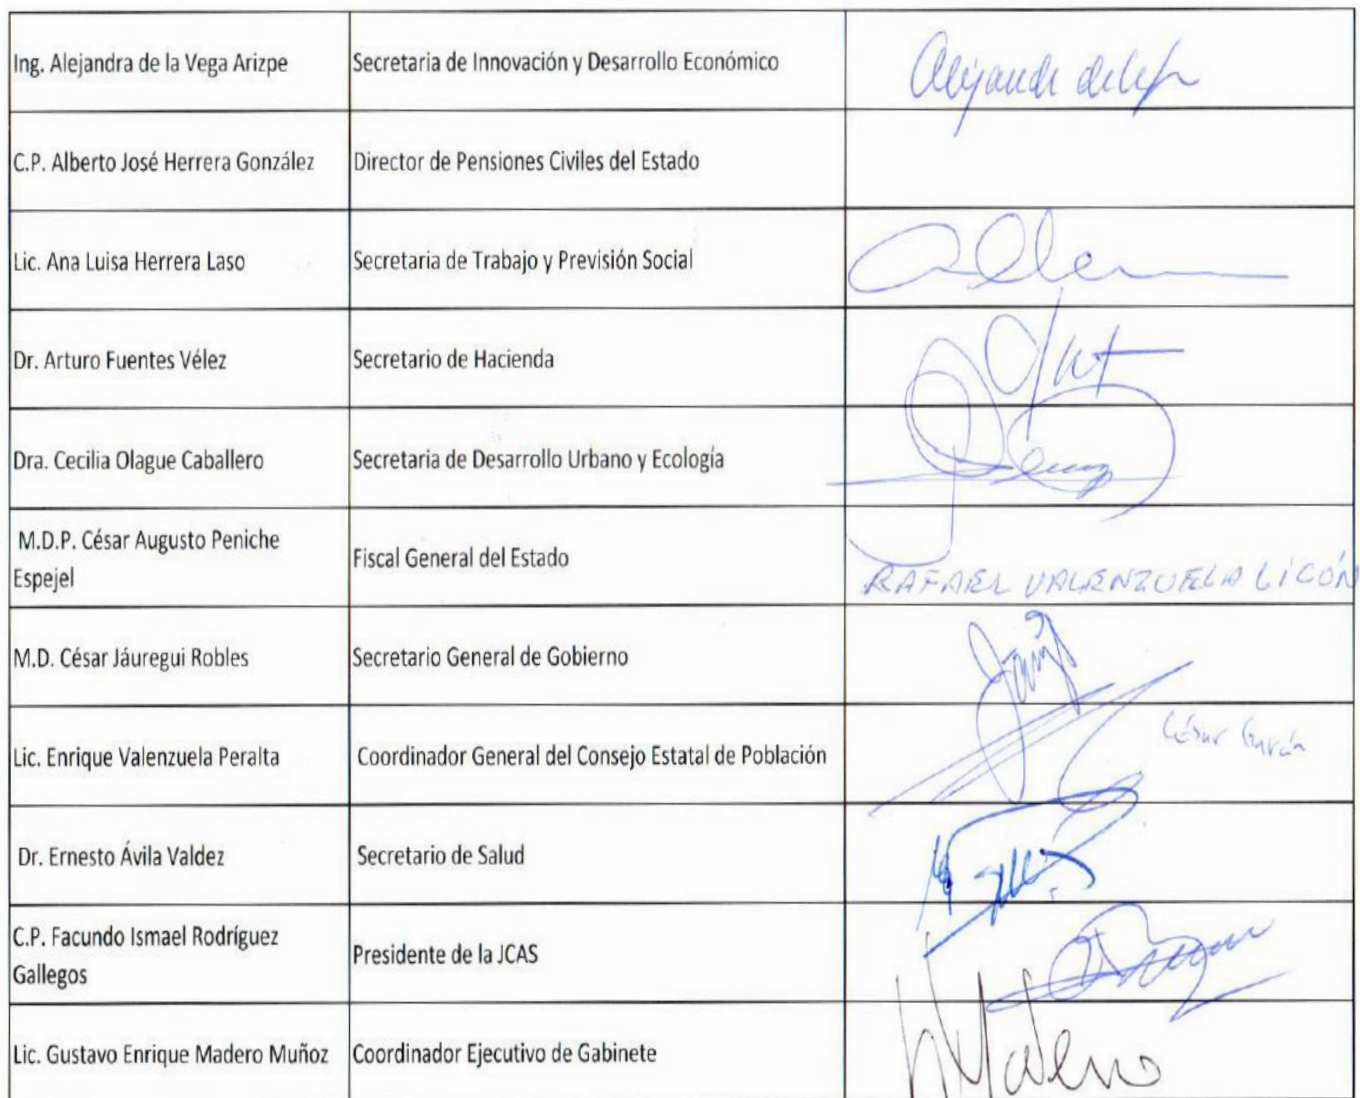 Ing. Alejandra de la Vega Arizpe
Secretaria de Innovación y Desarrollo Económico
C.P. Alberto José Herrera González
Director de Pensiones Civiles del Estado
Lic. Ana Luisa Herrera Laso
Secretaria de Trabajo y Previsión Social
Dr. Arturo Fuentes Vélez
Secretario de Hacienda
Dra. Cecilia Olague Caballero
Secretaria de Desarrollo Urbano y Ecología
M.D.P. César Augusto Peniche
Espejel
Fiscal General del Estado
RAFAEL VALENZUELA LICÓN
M.D. César Jáuregui Robles
Secretario General de Gobierno
Lic. Enrique Valenzuela Peralta
Coordinador General del Consejo Estatal de Población
César
Dr. Ernesto Ávila Valdez
Secretario de Salud
C.P. Facundo Ismael Rodríguez
Gallegos
Presidente de la JCAS
Lic. Gustavo Enrique Madero Muñoz
Coordinador Ejecutivo de Gabinete
Madero